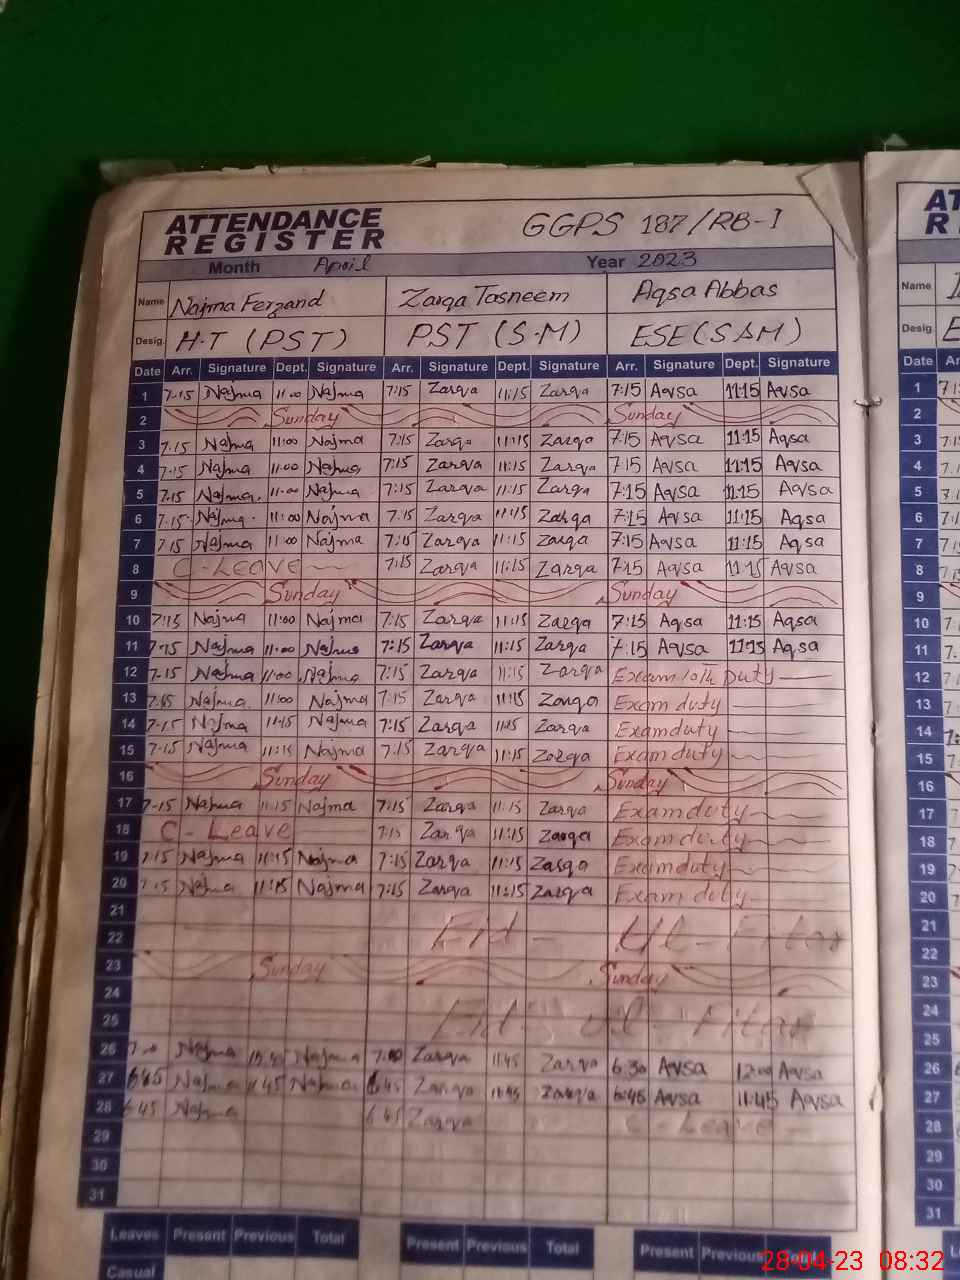 ATTENDANCE
REGISTER
GGPS 187/RB-I
Month April Year 2023
Name Najma Ferzand Zarqa Tasneem Aqsa Abbas
Desig. H.T (PST) PST (S.M) ESE (S&M)
Date Arr. Signature Dept. Signature Arr. Signature Dept. Signature Arr. Signature Dept. Signature
1 7-15 Najma 11:00 Najma 7:15 Zarqa 11:15 Zarqa 7:15 Aqsa 11:15 Aqsa
2 Sunday Sunday
3 7.15 Najma 11:00 Najma 7:15 Zarqa 11:15 Zarqa 7:15 Aqsa 11:15 Aqsa
4 7-15 Najma 11:00 Najma 7:15 Zarqa 11:15 Zarqa 7:15 Aqsa 11:15 Aqsa
5 7.15 Najma. 11:00 Najma 7:15 Zarqa 11:15 Zarqa 7:15 Aqsa 11:15 Aqsa
6 7.15 Najma. 11:00 Najma 7.15 Zarqa 11:15 Zarqa 7:15 Aqsa 11:15 Aqsa
7 7.15 Najma 11:00 Najma 7:15 Zarqa 11:15 Zarqa 7:15 Aqsa 11:15 Aqsa
8 C-Leave 7:15 Zarqa 11:15 Zarqa 7:15 Aqsa 11:15 Aqsa
9 Sunday Sunday
10 7:15 Najma 11:00 Najma 7:15 Zarqa 11:15 Zarqa 7:15 Aqsa 11:15 Aqsa
11 7-15 Najma 11:00 Najma 7:15 Zarqa 11:15 Zarqa 7:15 Aqsa 11:15 Aqsa
12 7-15 Najma 11:00 Najma 7:15 Zarqa 11:15 Zarqa Exam 10th Duty
13 7-15 Najma 11:00 Najma 7:15 Zarqa 11:15 Zarqa Exam duty
14 7-15 Najma 11:15 Najma 7:15 Zarqa 11:15 Zarqa Exam duty
15 7-15 Najma 11:15 Najma 7:15 Zarqa 11:15 Zarqa Exam duty
16 Sunday Sunday
17 7-15 Najma 11:15 Najma 7:15 Zarqa 11:15 Zarqa Exam duty
18 C-Leave 7:15 Zarqa 11:15 Zarqa Exam duty
19 7:15 Najma 11:15 Najma 7:15 Zarqa 11:15 Zarqa Exam duty
20 7:15 Najma 11:15 Najma 7:15 Zarqa 11:15 Zarqa Exam duty
21
22 Eid - Ul - Fitar
23 Sunday Sunday
24
25 Eid - ul - Fitar
26 Najma Najma 7:00 Zarqa 11:45 Zarqa 6:30 Aqsa 12:00 Aqsa
27 6:45 Najma 11:45 Najma 6:45 Zarqa 11:45 Zarqa 6:45 Aqsa 11:45 Aqsa
28 6:45 Najma 6:45 Zarqa C - Leave
29
30
31
Leaves Present Previous Total Present Previous Total Present Previous Total
Casual
28-04-23 08:32